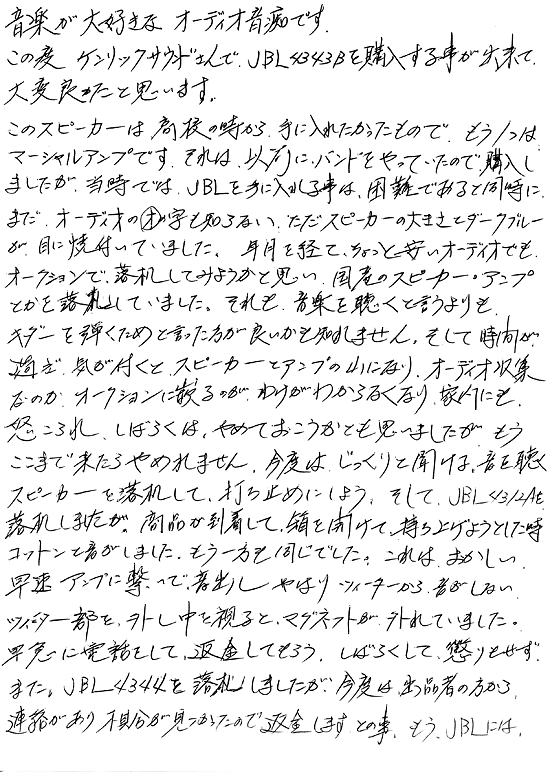 音楽が大好きな オーディオ音痴です.
この度 ケンリックサウンドさんで、JBL4343Bを購入する事が出来て、
大変良かったと思います。
このスピーカーは 高校の時から 手に入れたかったもので、もう1つは、
マーシャルアンプです. それは、以前に、バンドをやっていたので購入し
ましたが、当時では、JBLを手に入れる事は、困難であると同時に、
まだ、オーディオのオの字も知らない、ただスピーカーの大きさとダークブルー
が、目に焼付いていました。 年月を経て、ちょっと安いオーディオでも、
オークションで、落札してみようかと思い、国産のスピーカー・アンプ
とかを落札していました。それも、音楽を聴くと言うよりも、
ギターを弾くためと言った方が良いかも知れません。そして時間が、
過ぎ、気が付くと、スピーカーとアンプの山になり、オーディオ収集
なのか、オークションに散るのが、わけがわからなくなり、家内にも、
怒こられ、しばらくは、やめておこうかとも思いましたが、もう
ここまで来たらやめれません、今度は、じっくりと聞ける、音を聴く
スピーカーを落札して、打ち止めにしよう、そして、JBL4312Aを
落札しましたが、商品が到着して、箱を開けて、持ち上げようとした時
コットンと音がしました、もう一方も同じでした。これは、おかしい、
早速 アンプに繋いで、音出し やはり ツィーターから音がしない
ツィーター部を、外し中を視ると、マグネットが、外れていました。
早急に電話をして、返金してもらう、しばらくして、懲りもせず、
また。JBL4344を 落札しましたが、今度は、出品者の方から、
連絡があり 不具合が見つかったので返金します との事、もう、JBLには、